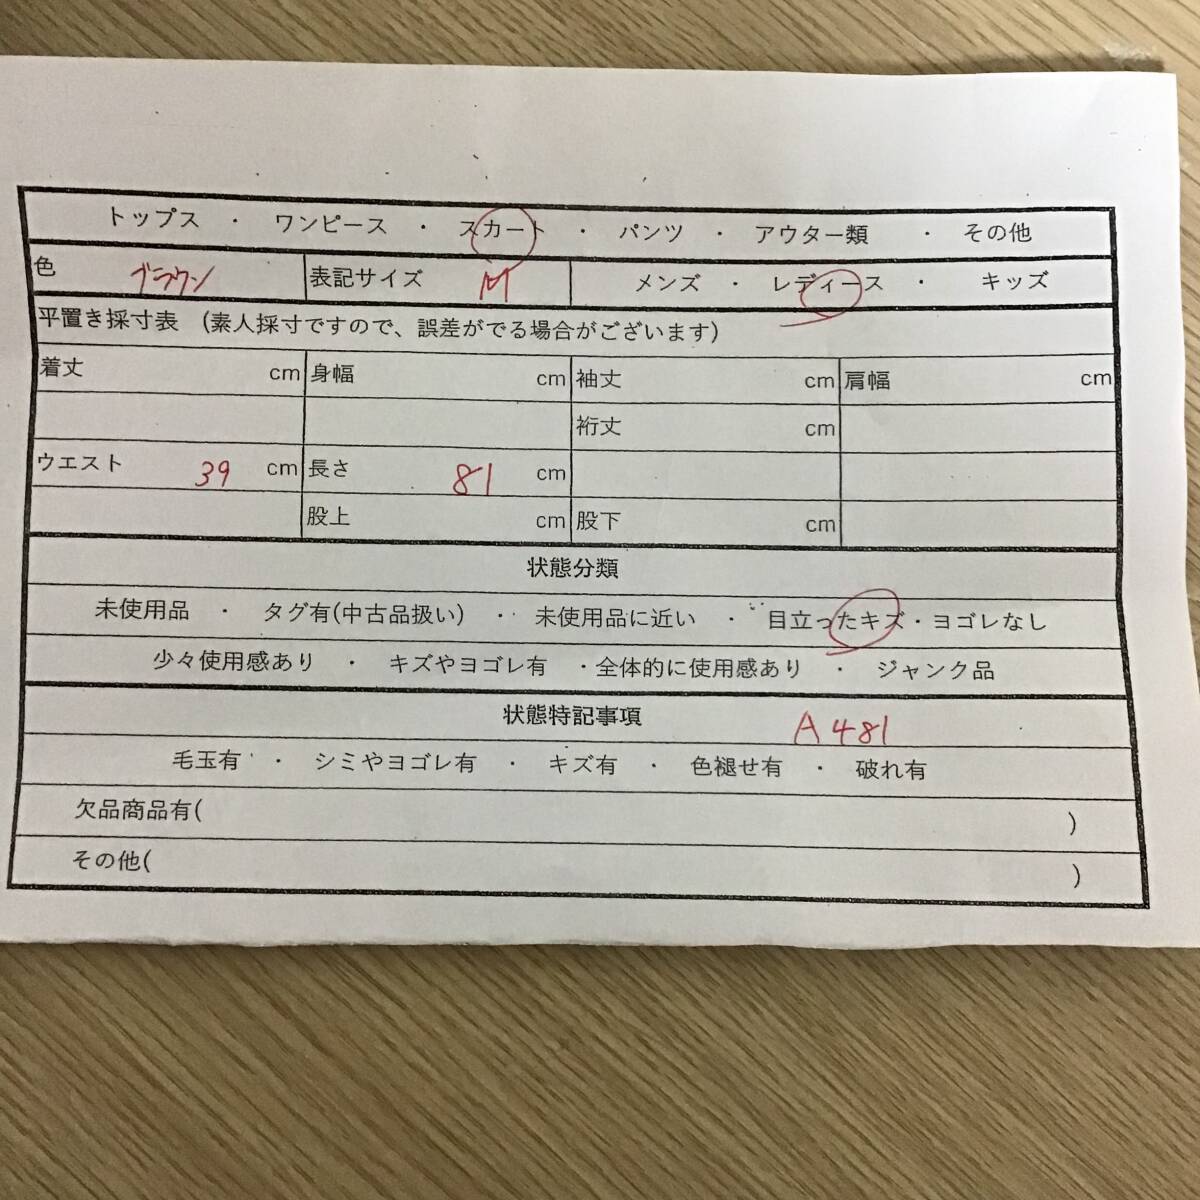 トップス ・ ワンピース ・ スカート ・ パンツ ・ アウター類 ・ その他
色 ブラウン 表記サイズ M メンズ ・ レディース ・ キッズ
平置き採寸表 (素人採寸ですので、誤差がでる場合がございます)
着丈 cm 身幅 cm 袖丈 cm 肩幅 cm
裄丈 cm
ウエスト 39 cm 長さ 81 cm
股上 cm 股下 cm
状態分類
未使用品 ・ タグ有(中古品扱い) ・ 未使用品に近い ・ 目立ったキズ・ヨゴレなし
少々使用感あり ・ キズやヨゴレ有 ・全体的に使用感あり ・ ジャンク品
状態特記事項 A481
毛玉有 ・ シミやヨゴレ有 ・ キズ有 ・ 色褪せ有 ・ 破れ有
欠品商品有( )
その他( )